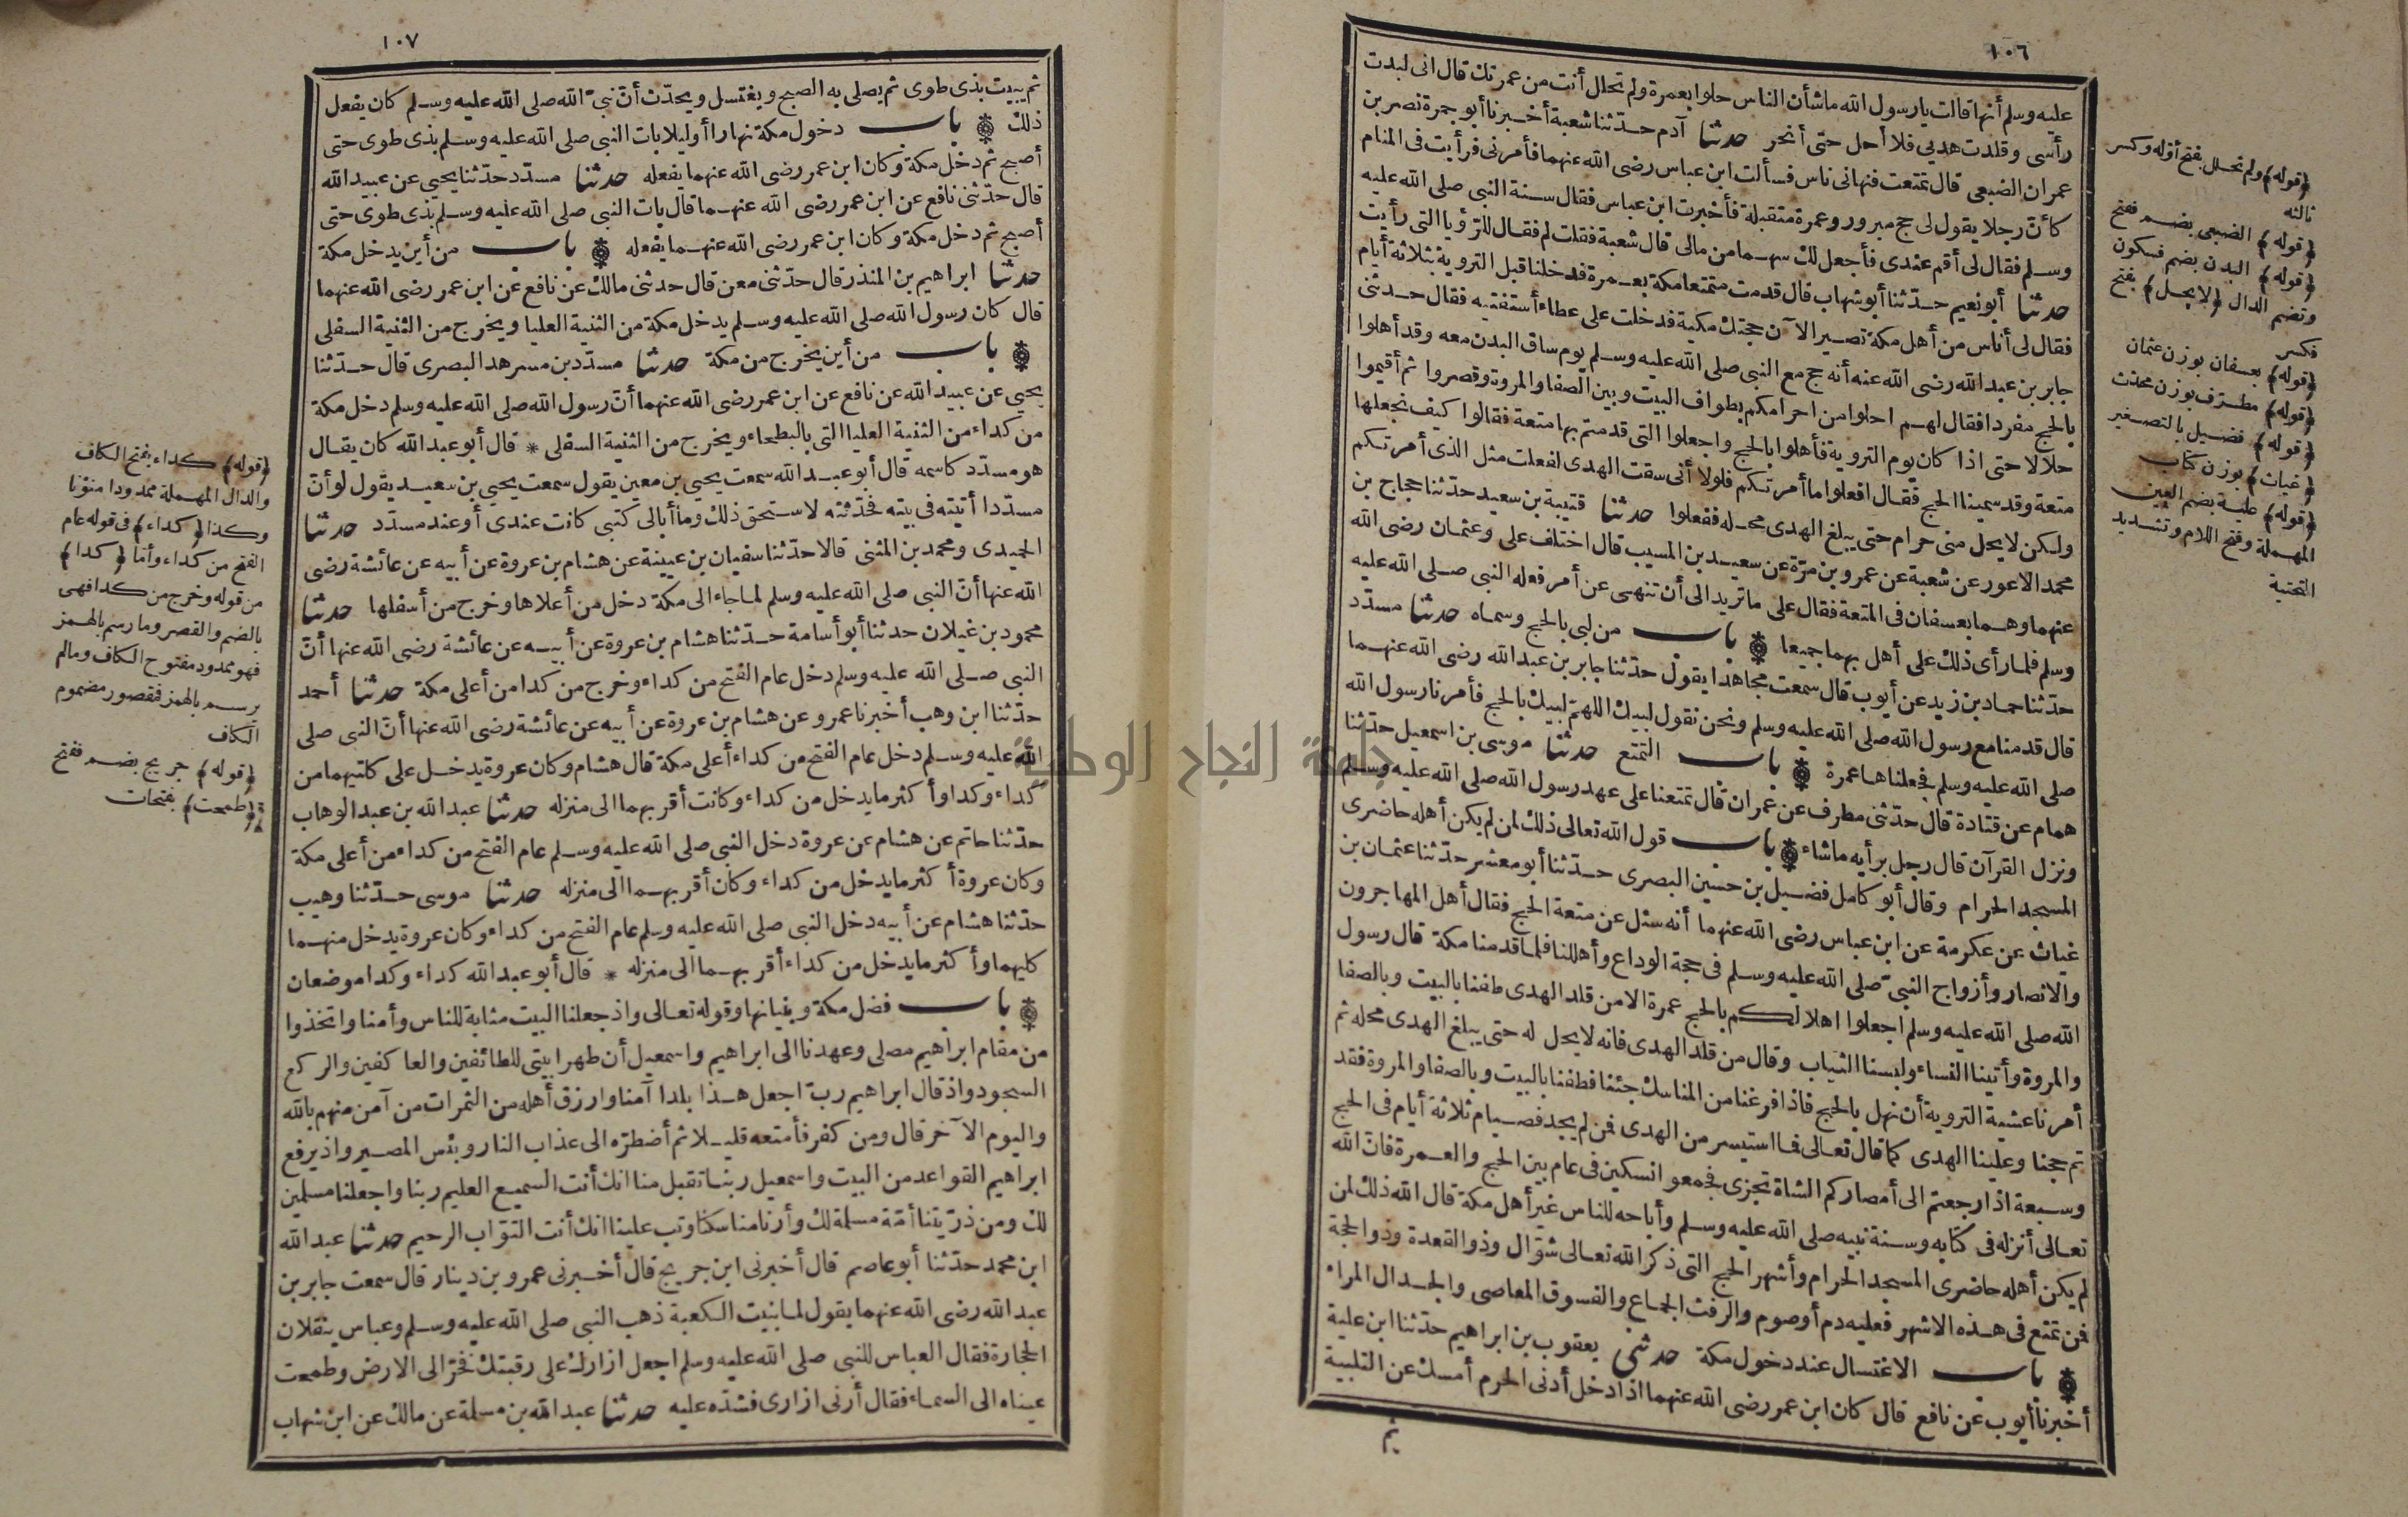 ١٠٦
عليه وسلم أنها قالت يا رسول الله ما شأن الناس حلوا بعمرة ولم تحلل أنت من عمرتك قال انى لبدت
رأسى وقلدت هديى فلا أحل حتى أنحر حدثنا آدم حدّثنا شعبة أخبرنا أبو جمرة نصر بن
عمران الضبعى قال تمتعت فنهانى ناس فسألت ابن عباس رضى الله عنهما فأمرنى فرأيت فى المنام
كأنّ رجلا يقول لى حج مبرور وعمرة متقبلة فأخبرت ابن عباس فقال سنة النبى صلى الله عليه
وسلم فقال لى أقم عندى فأجعل لك سهما من مالى قال شعبة فقلت لم فقال للرّؤيا التى رأيت
حدثنا أبو نعيم حدّثنا أبو شهاب قال قدمت متمتعا مكة بعمرة فدخلنا قبل التروية بثلاثة أيام
فقال لى أناس من أهل مكة تصير الآن حجتك مكية فدخلت على عطاء أستفتيه فقال حدثنى
جابر بن عبد الله رضى الله عنه أنه حج مع النبى صلى الله عليه وسلم يوم ساق البدن معه وقد أهلوا
بالحج مفردا فقال لهم احلوا من احرامكم بطواف البيت وبين الصفا والمروة وقصروا ثم أقيموا
حلالا حتى اذا كان يوم التروية فأهلوا بالحج واجعلوا التى قدمتم بها متعة فقالوا كيف نجعلها
متعة وقد سمينا الحج فقال افعلوا ما أمرتكم فلولا أنى سقت الهدى لفعلت مثل الذى أمرتكم
ولكن لا يحل منى حرام حتى يبلغ الهدى محله ففعلوا حدثنا قتيبة بن سعيد حدّثنا حجاج بن
محمد الاعور عن شعبة عن عمرو بن مرّة عن سعيد بن المسيب قال اختلف على وعثمان رضى الله
عنهما وهما بعسفان فى المتعة فقال على ما تريد الى أن تنهى عن أمر فعله النبى صلى الله عليه
وسلم فلما رأى ذلك على أهل بهما جميعا باب من لبى بالحج وسماه حدثنا مسدّد
حدّثنا حماد بن زيد عن أيوب قال سمعت مجاهدا يقول حدّثنا جابر بن عبد الله رضى الله عنهما
قال قدمنا مع رسول الله صلى الله عليه وسلم ونحن نقول لبيك اللهمّ لبيك بالحج فأمرنا رسول الله
صلى الله عليه وسلم فجعلناها عمرة باب التمتع حدثنا موسى بن اسمعيل حدّثنا
همام عن قتادة قال حدّثنى مطرف عن عمران قال تمتعنا على عهد رسول الله صلى الله عليه وسلم
ونزل القرآن قال رجل برأيه ما شاء باب قول الله تعالى ذلك لمن لم يكن أهله حاضرى
المسجد الحرام وقال أبو كامل فضيل بن حسين البصرى حدّثنا أبو معشر حدّثنا عثمان بن
غياث عن عكرمة عن ابن عباس رضى الله عنهما أنه سئل عن متعة الحج فقال أهل المهاجرون
والانصار وأزواج النبىّ صلى الله عليه وسلم فى حجة الوداع وأهللنا فلما قدمنا مكة قال رسول
الله صلى الله عليه وسلم اجعلوا اهلالكم بالحج عمرة الا من قلد الهدى طفنا بالبيت وبالصفا
والمروة وأتينا النساء ولبسنا الثياب وقال من قلد الهدى فانه لا يحل له حتى يبلغ الهدى محله ثم
أمرنا عشية التروية أن نهل بالحج فاذا فرغنا من المناسك جئنا فطفنا بالبيت وبالصفا والمروة فقد
تم حجنا وعلينا الهدى كما قال تعالى فما استيسر من الهدى فمن لم يجد فصيام ثلاثة أيام فى الحج
وسبعة اذا رجعتم الى أمصاركم الشاة تجزى فجمعوا نسكين فى عام بين الحج والعمرة فانّ الله
تعالى أنزله فى كتابه وسنة نبيه صلى الله عليه وسلم وأباحه للناس غير أهل مكة قال الله ذلك لمن
لم يكن أهله حاضرى المسجد الحرام وأشهر الحج التى ذكر الله تعالى شوّال وذو القعدة وذو الحجة
فمن تمتع فى هذه الاشهر فعليه دم أو صوم والرفث الجماع والفسوق المعاصى والجدال المراء
باب الاغتسال عند دخول مكة حدثنى يعقوب بن ابراهيم حدّثنا ابن علية
أخبرنا أيوب عن نافع قال كان ابن عمر رضى الله عنهما اذا دخل أدنى الحرم أمسك عن التلبية
ثم
(قوله) ولم تحلل بفتح أوّله وكسر
ثالثه
(قوله) الضبعى بضم ففتح
(قوله) البدن بضم فسكون
وتضم الدال (لا يحل) بفتح
فكسر
(قوله) بعسفان بوزن عثمان
(قوله) مطرّف بوزن محدّث
(قوله) فضيل بالتصغير
(غياث) بوزن كتاب
(قوله) علية بضم العين
المهملة وفتح اللام وتشديد
التحتية
١٠٧
ثم يبيت بذى طوى ثم يصلى به الصبح ويغتسل ويحدّث أنّ نبىّ الله صلى الله عليه وسلم كان يفعل
ذلك باب دخول مكة نهارا أو ليلا بات النبى صلى الله عليه وسلم بذى طوى حتى
أصبح ثم دخل مكة وكان ابن عمر رضى الله عنهما يفعله حدثنا مسدّد حدّثنا يحيى عن عبيد الله
قال حدّثنى نافع عن ابن عمر رضى الله عنهما قال بات النبى صلى الله عليه وسلم بذى طوى حتى
أصبح ثم دخل مكة وكان ابن عمر رضى الله عنهما يفعله باب من أين يدخل مكة
حدثنا ابراهيم بن المنذر قال حدّثنى معن قال حدثنى مالك عن نافع عن ابن عمر رضى الله عنهما
قال كان رسول الله صلى الله عليه وسلم يدخل مكة من الثنية العليا ويخرج من الثنية السفلى
باب من أين يخرج من مكة حدثنا مسدّد بن مسرهد البصرى قال حدّثنا
يحيى عن عبيد الله عن نافع عن ابن عمر رضى الله عنهما أنّ رسول الله صلى الله عليه وسلم دخل مكة
من كداء من الثنية العليا التى بالبطحاء ويخرج من الثنية السفلى * قال أبو عبد الله كان يقال
هو مسدّد كاسمه قال أبو عبد الله سمعت يحيى بن معين يقول سمعت يحيى بن سعيد يقول لو أنّ
مسدّدا أتيته فى بيته فحدّثته لاستحق ذلك وما أبالى كتبى كانت عندى أو عند مسدّد حدثنا
الحميدى ومحمد بن المثنى قالا حدّثنا سفيان بن عيينة عن هشام بن عروة عن أبيه عن عائشة رضى
الله عنها أنّ النبى صلى الله عليه وسلم لما جاء الى مكة دخل من أعلاها وخرج من أسفلها حدثنا
محمود بن غيلان حدثنا أبو أسامة حدّثنا هشام بن عروة عن أبيه عن عائشة رضى الله عنها أنّ
النبى صلى الله عليه وسلم دخل عام الفتح من كداء وخرج من كدا من أعلى مكة حدثنا أحمد
حدّثنا ابن وهب أخبرنا عمرو عن هشام بن عروة عن أبيه عن عائشة رضى الله عنها أنّ النبى صلى
الله عليه وسلم دخل عام الفتح من كداء أعلى مكة قال هشام وكان عروة يدخل على كلتيهما من
كداء وكدا وأكثر ما يدخل من كداء وكانت أقربهما الى منزله حدثنا عبد الله بن عبد الوهاب
حدّثنا حاتم عن هشام عن عروة دخل النبى صلى الله عليه وسلم عام الفتح من كداء من أعلى مكة
وكان عروة أكثر ما يدخل من كداء وكان أقربهما الى منزله حدثنا موسى حدّثنا وهيب
حدّثنا هشام عن أبيه دخل النبى صلى الله عليه وسلم عام الفتح من كداء وكان عروة يدخل منهما
كليهما وأكثر ما يدخل من كداء أقربهما الى منزله * قال أبو عبد الله كداء وكدا موضعان
باب فضل مكة وبنيانها وقوله تعالى واذ جعلنا البيت مثابة للناس وأمنا واتخذوا
من مقام ابراهيم مصلى وعهدنا الى ابراهيم واسمعيل أن طهرا بيتى للطائفين والعاكفين والركع
السجود واذ قال ابراهيم ربّ اجعل هذا بلدا آمنا وارزق أهله من الثمرات من آمن منهم بالله
واليوم الآخر قال ومن كفر فأمتعه قليلا ثم أضطرّه الى عذاب النار وبئس المصير واذ يرفع
ابراهيم القواعد من البيت واسمعيل ربنا تقبل منا انك أنت السميع العليم ربنا واجعلنا مسلمين
لك ومن ذرّيتنا أمّة مسلمة لك وأرنا مناسكنا وتب علينا انك أنت التوّاب الرحيم حدثنا عبد الله
ابن محمد حدّثنا أبو عاصم قال أخبرنى ابن جريج قال أخبرنى عمرو بن دينار قال سمعت جابر بن
عبد الله رضى الله عنهما يقول لما بنيت الكعبة ذهب النبى صلى الله عليه وسلم وعباس ينقلان
الحجارة فقال العباس للنبى صلى الله عليه وسلم اجعل ازارك على رقبتك فخرّ الى الارض وطمحت
عيناه الى السماء فقال أرنى ازارى فشدّه عليه حدثنا عبد الله بن مسلمة عن مالك عن ابن شهاب
(قوله) كداء بفتح الكاف
والدال المهملة ممدودا منوّنا
وكذا (كداء) فى قوله عام
الفتح من كداء وأمّا (كدا)
من قوله وخرج من كدا فهى
بالضم والقصر وما رسم بالهمز
فهو ممدود مفتوح الكاف وما لم
يرسم بالهمز فقصور مضموم
الكاف
(قوله) جريج بضم ففتح
(طمحت) بفتحات
جامعة النجاح الوطنية